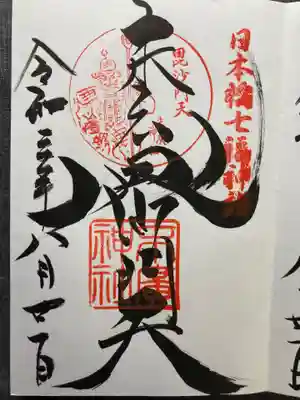 日本橋七福神
毘沙門天
毘沙門天
末廣神社
令和三年八月